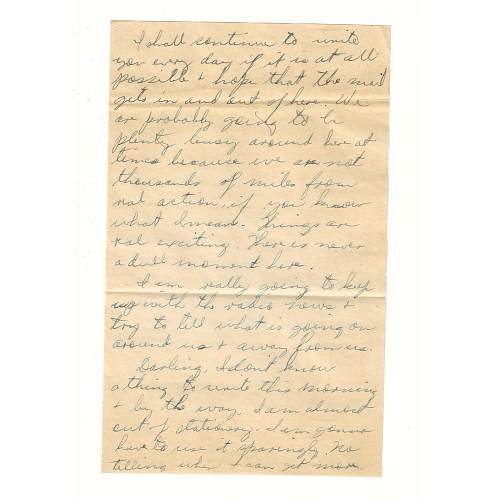 I shall continue to write
you every day if it is at all
possible + hope that the mail
gets in and out of here. We
are probably going to be
plenty busy around here at
times because we are not
thousands of miles from
real action, if you know
what I mean. Things are
real exciting. There is never
a dull moment here.
I am really going to keep
up with the radio news +
try to tell what is going on
around us + away from us.
Darling, I don't know
a thing to write this morning
+ by the way, I am almost
out of stationery. I am gonna
have to use it sparingly. No
telling when I can get more.